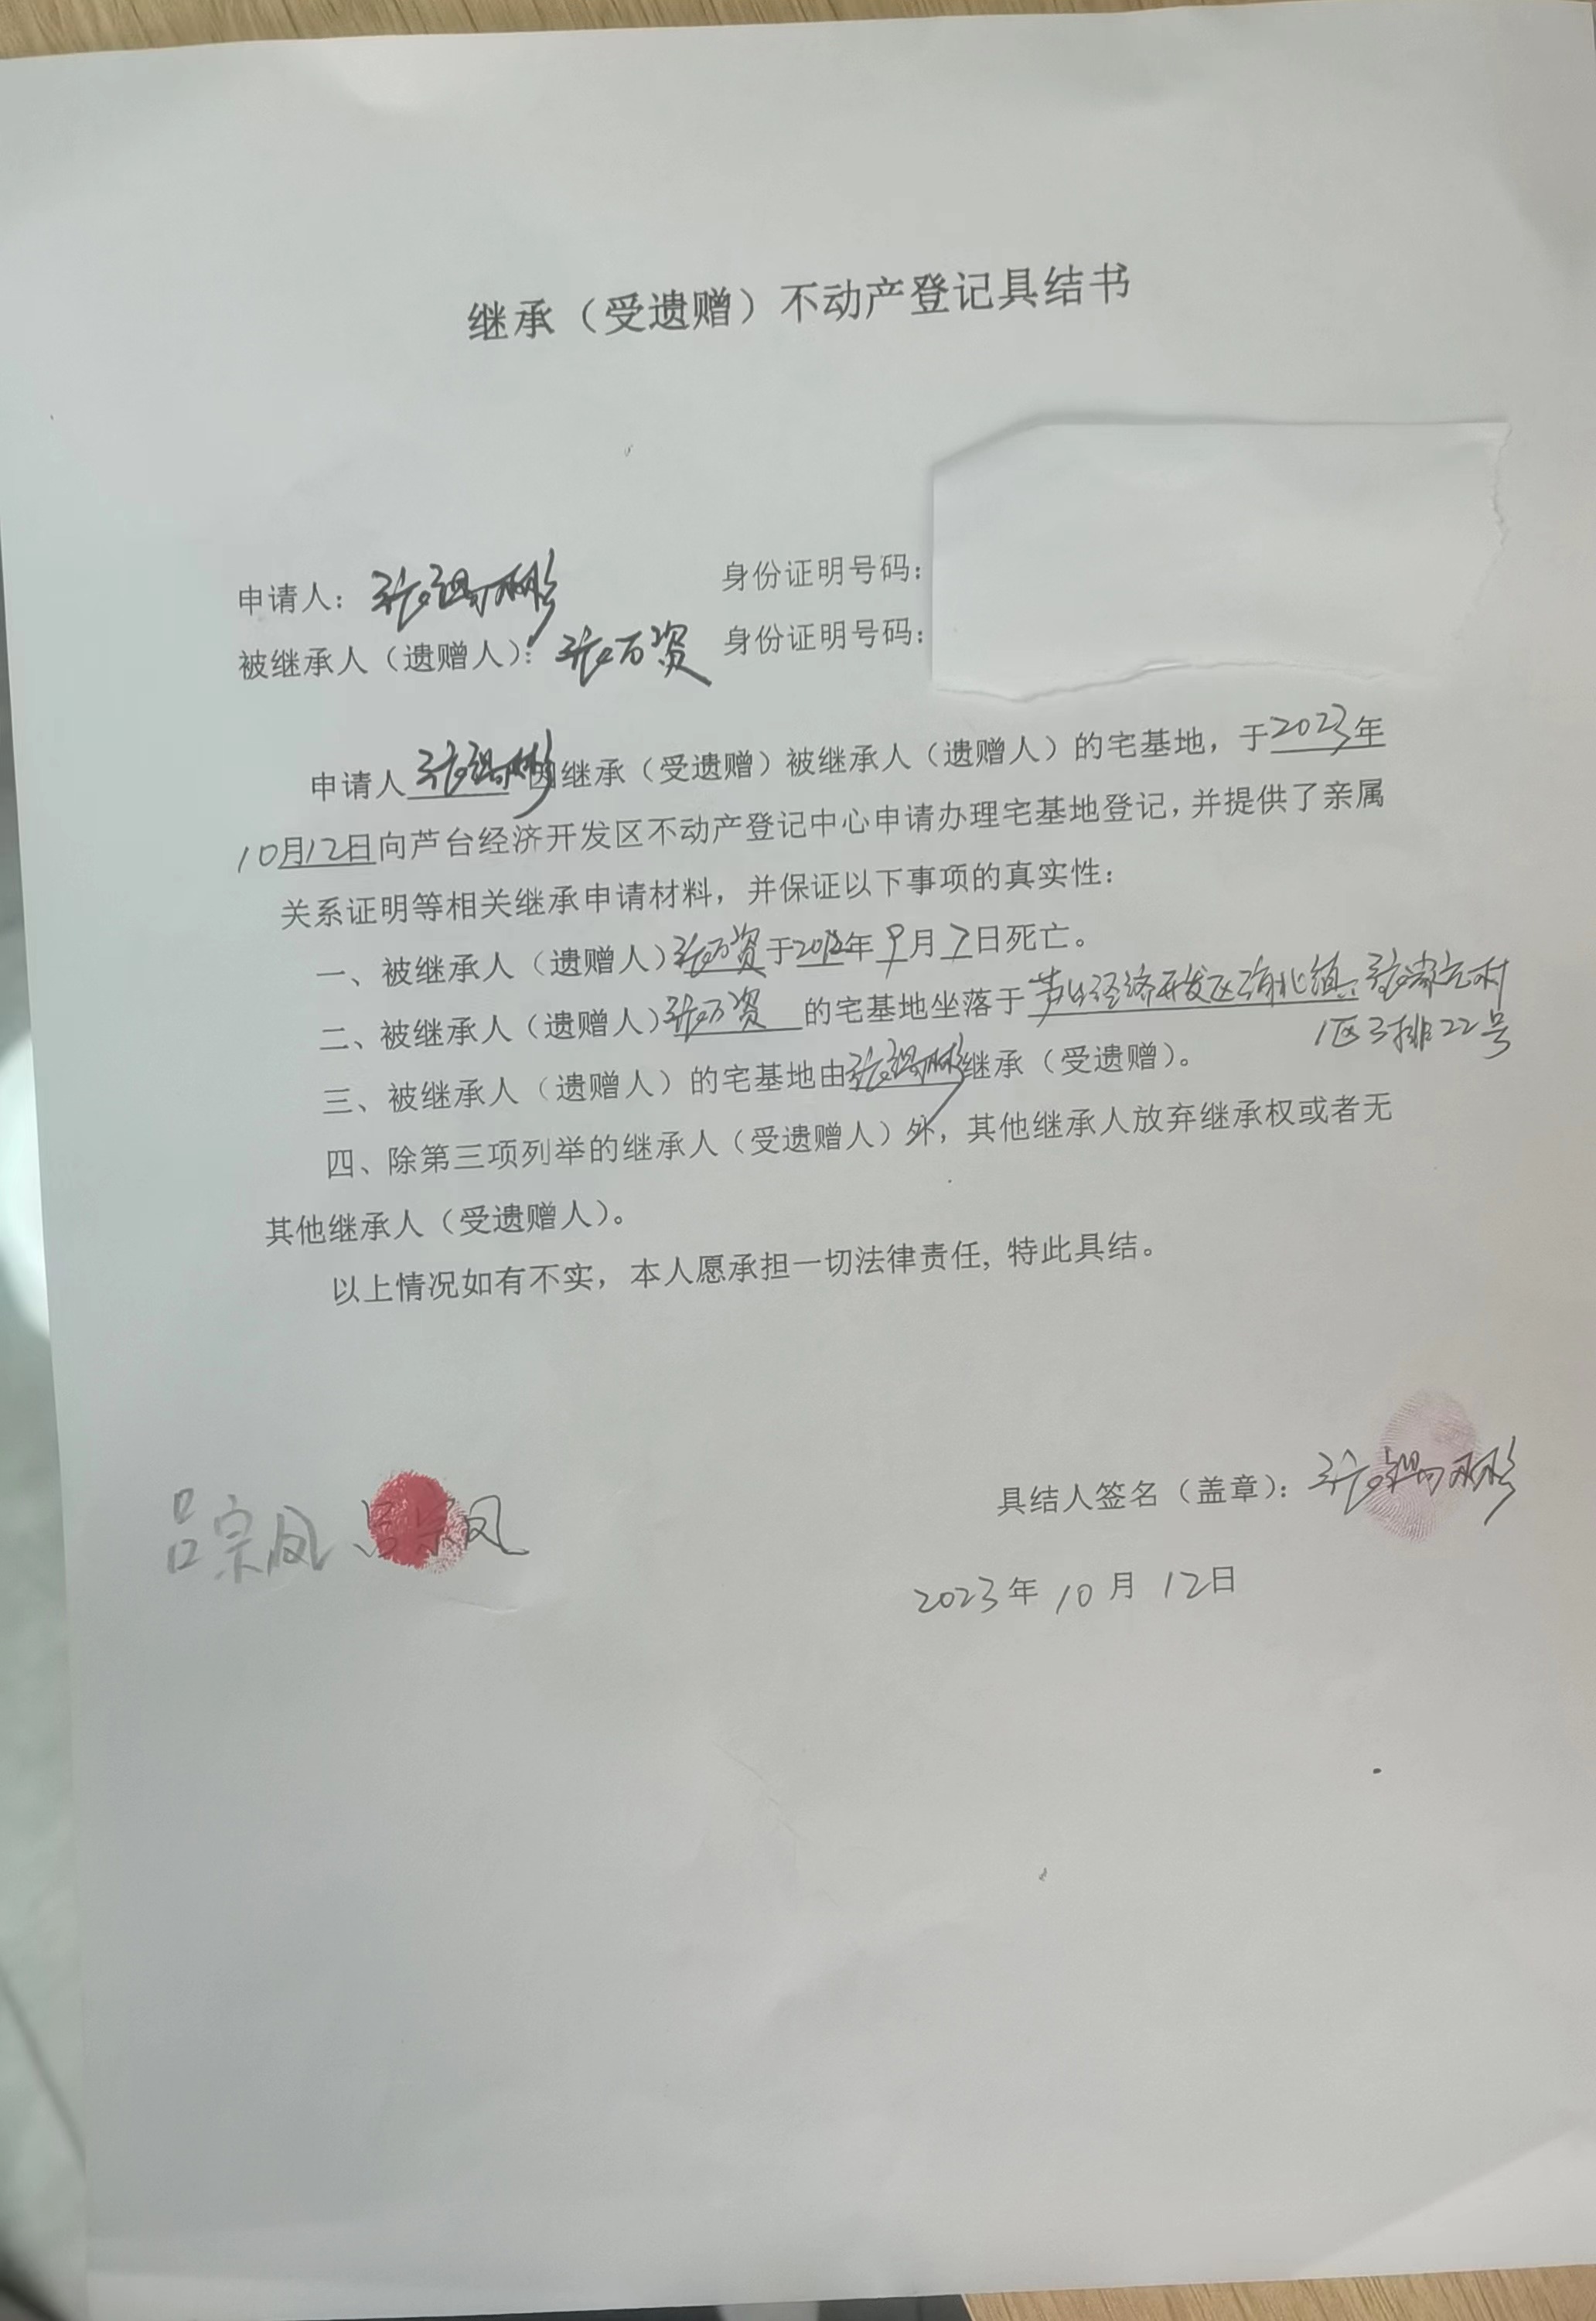 继承（受遗赠）不动产登记具结书
申请人：张锡彬 身份证明号码：
被继承人（遗赠人）：张万资 身份证明号码：
申请人张锡彬因继承（受遗赠）被继承人（遗赠人）的宅基地，于2023年
10月12日向芦台经济开发区不动产登记中心申请办理宅基地登记，并提供了亲属
关系证明等相关继承申请材料，并保证以下事项的真实性：
一、被继承人（遗赠人）张万资于2012年9月7日死亡。
二、被继承人（遗赠人）张万资的宅基地坐落于芦台经济开发区海北镇张家元村
1区3排22号
三、被继承人（遗赠人）的宅基地由张锡彬继承（受遗赠）。
四、除第三项列举的继承人（受遗赠人）外，其他继承人放弃继承权或者无
其他继承人（受遗赠人）。
以上情况如有不实，本人愿承担一切法律责任，特此具结。
具结人签名（盖章）：张锡彬
吕宗凤 吕宗凤
2023年10月12日